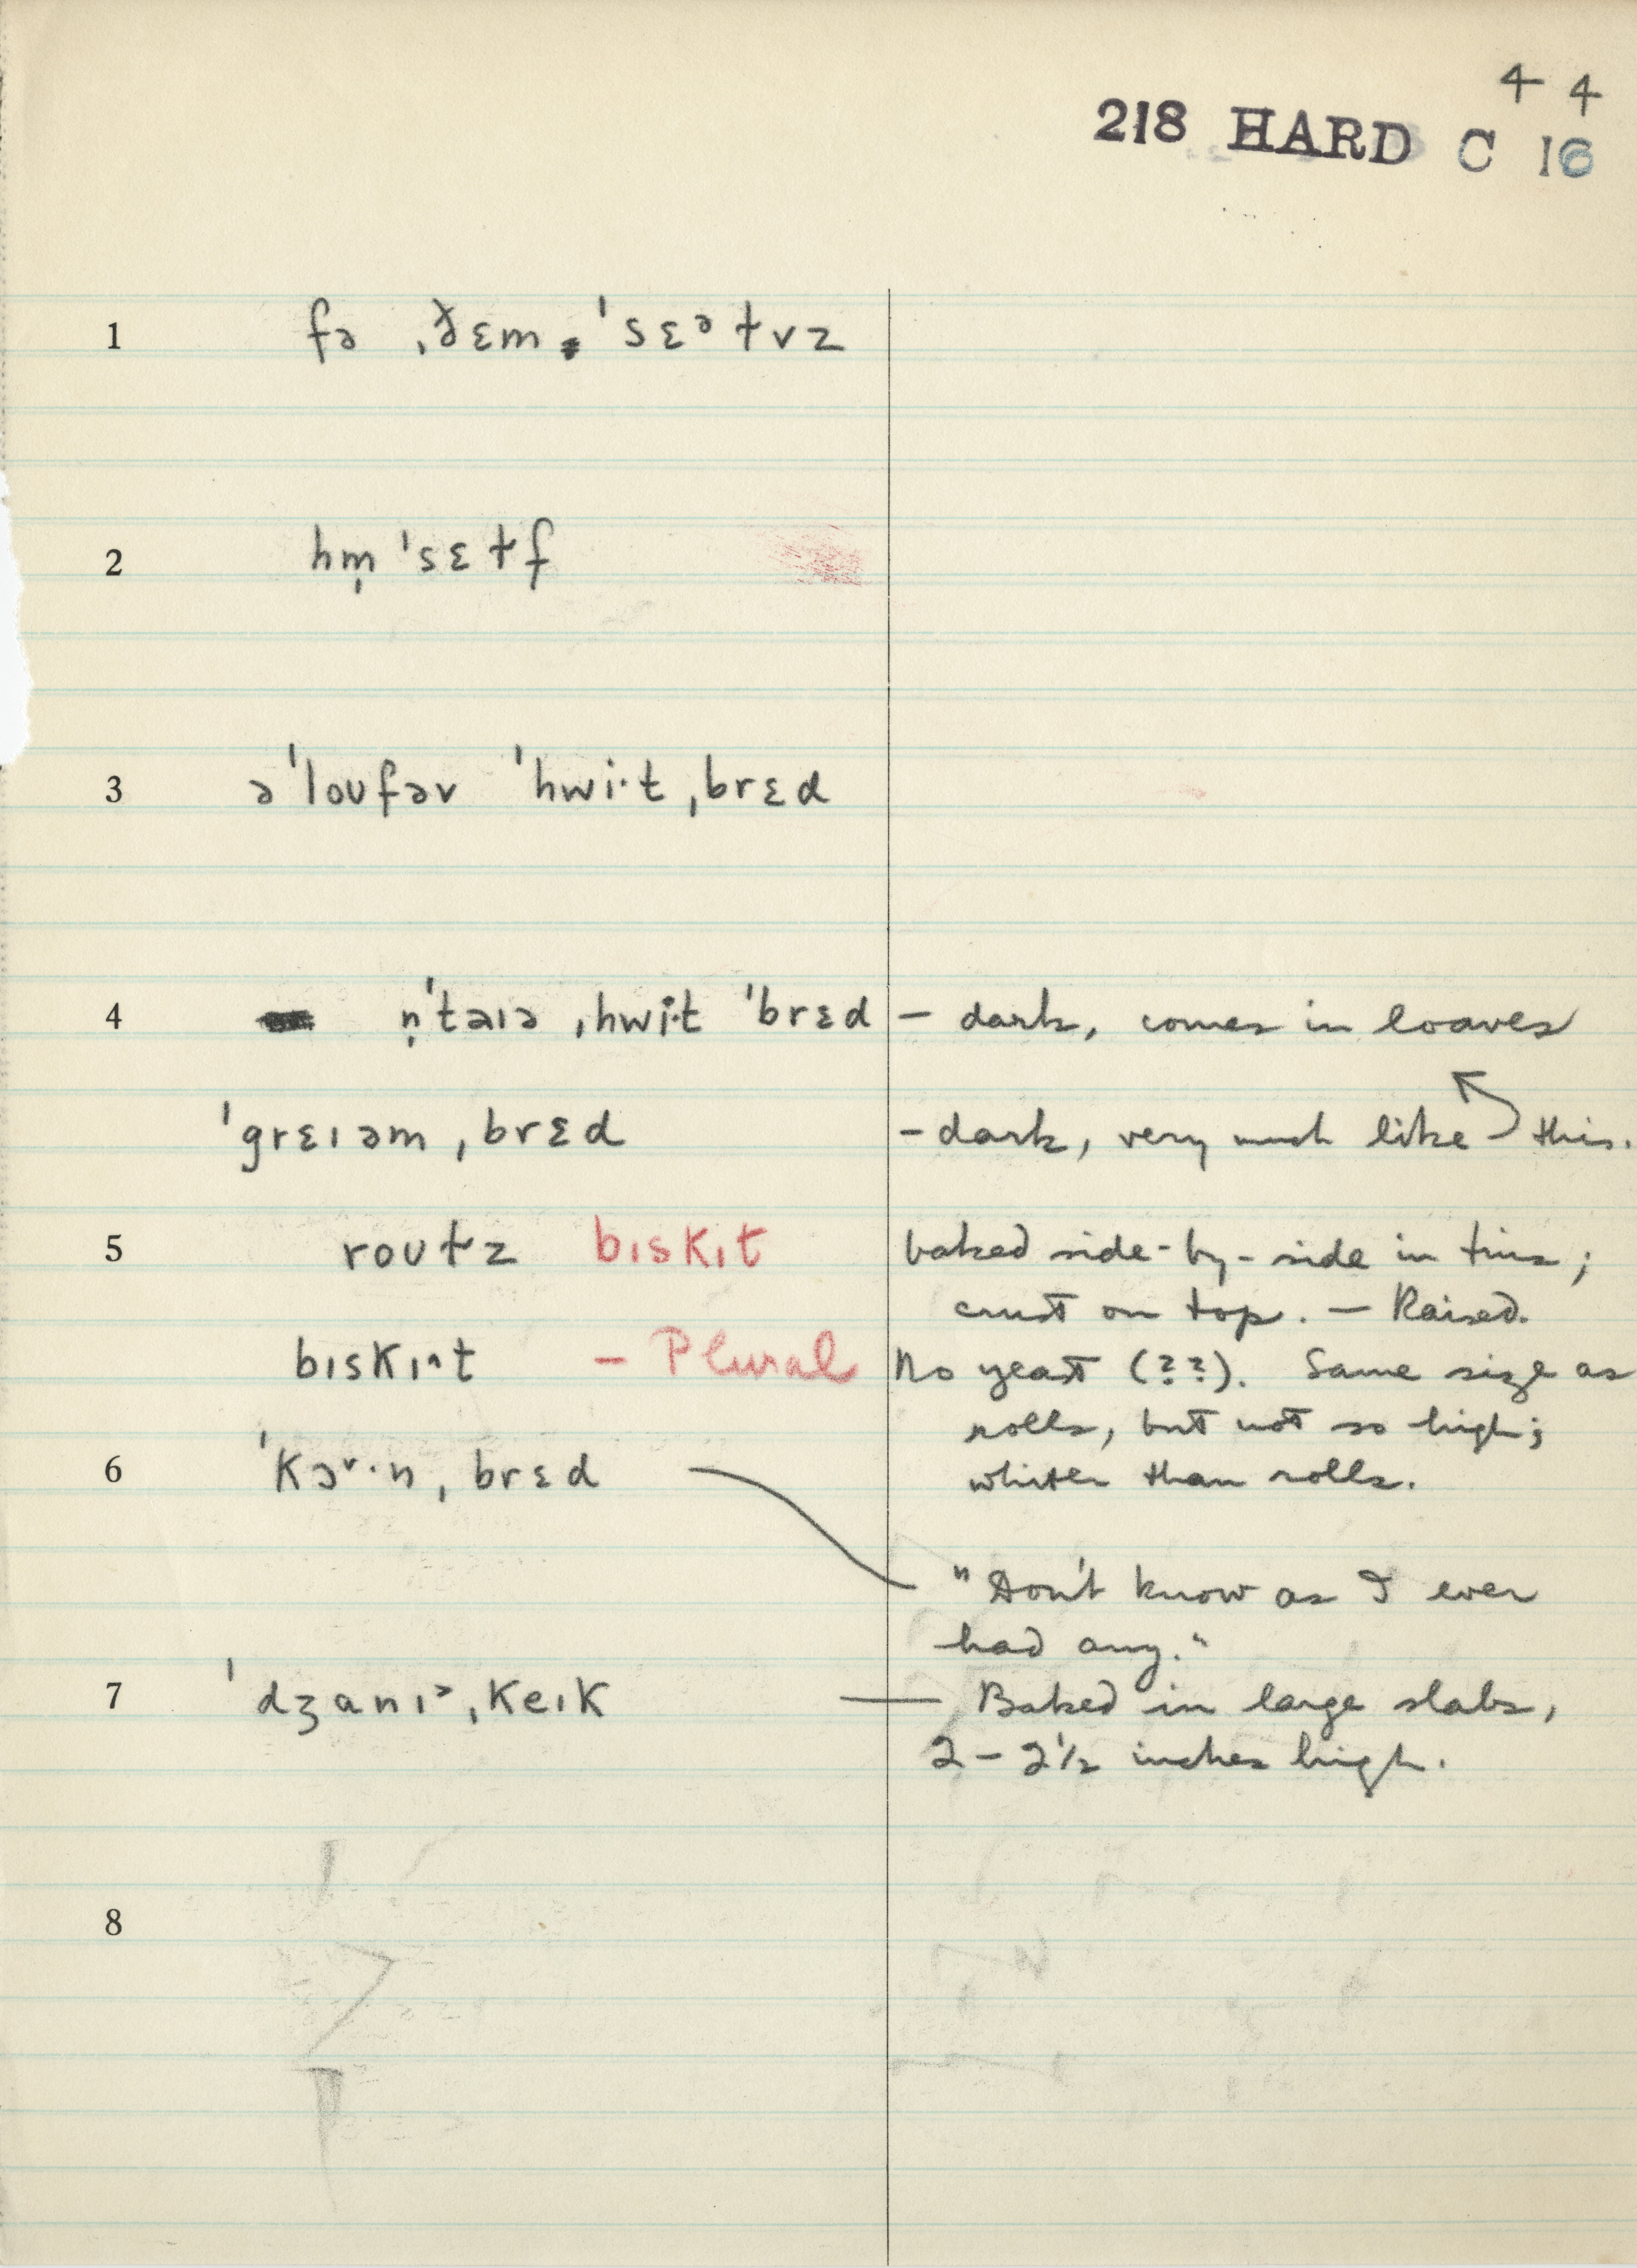 4 4
218 HARD C 16
1 fə ˌðɛm ˈsɛᵊɫvz
2 hm̩ ˈsɛɫf
3 əˈloʊfəv ˈhwi·t ˌbrɛd
4 n̩ˈtaɪə ˌhwi·t ˈbrɛd – dark, comes in loaves
ˈgrɛɪəm ˌbrɛd – dark, very much like this.
5 roʊɫz bɪskɪt baked side-by-side in tins;
crust on top. – Raised.
bɪskɪ^t – Plural No yeast (??). Same size as
rolls, but not so high;
6 ˈkɔᵛ·n ˌbrɛd whiter than rolls.
"Don't know as I ever
had any."
7 ˈdʒanɪ˃ ˌkeɪk — Baked in large slabs,
2 – 2½ inches high.
8